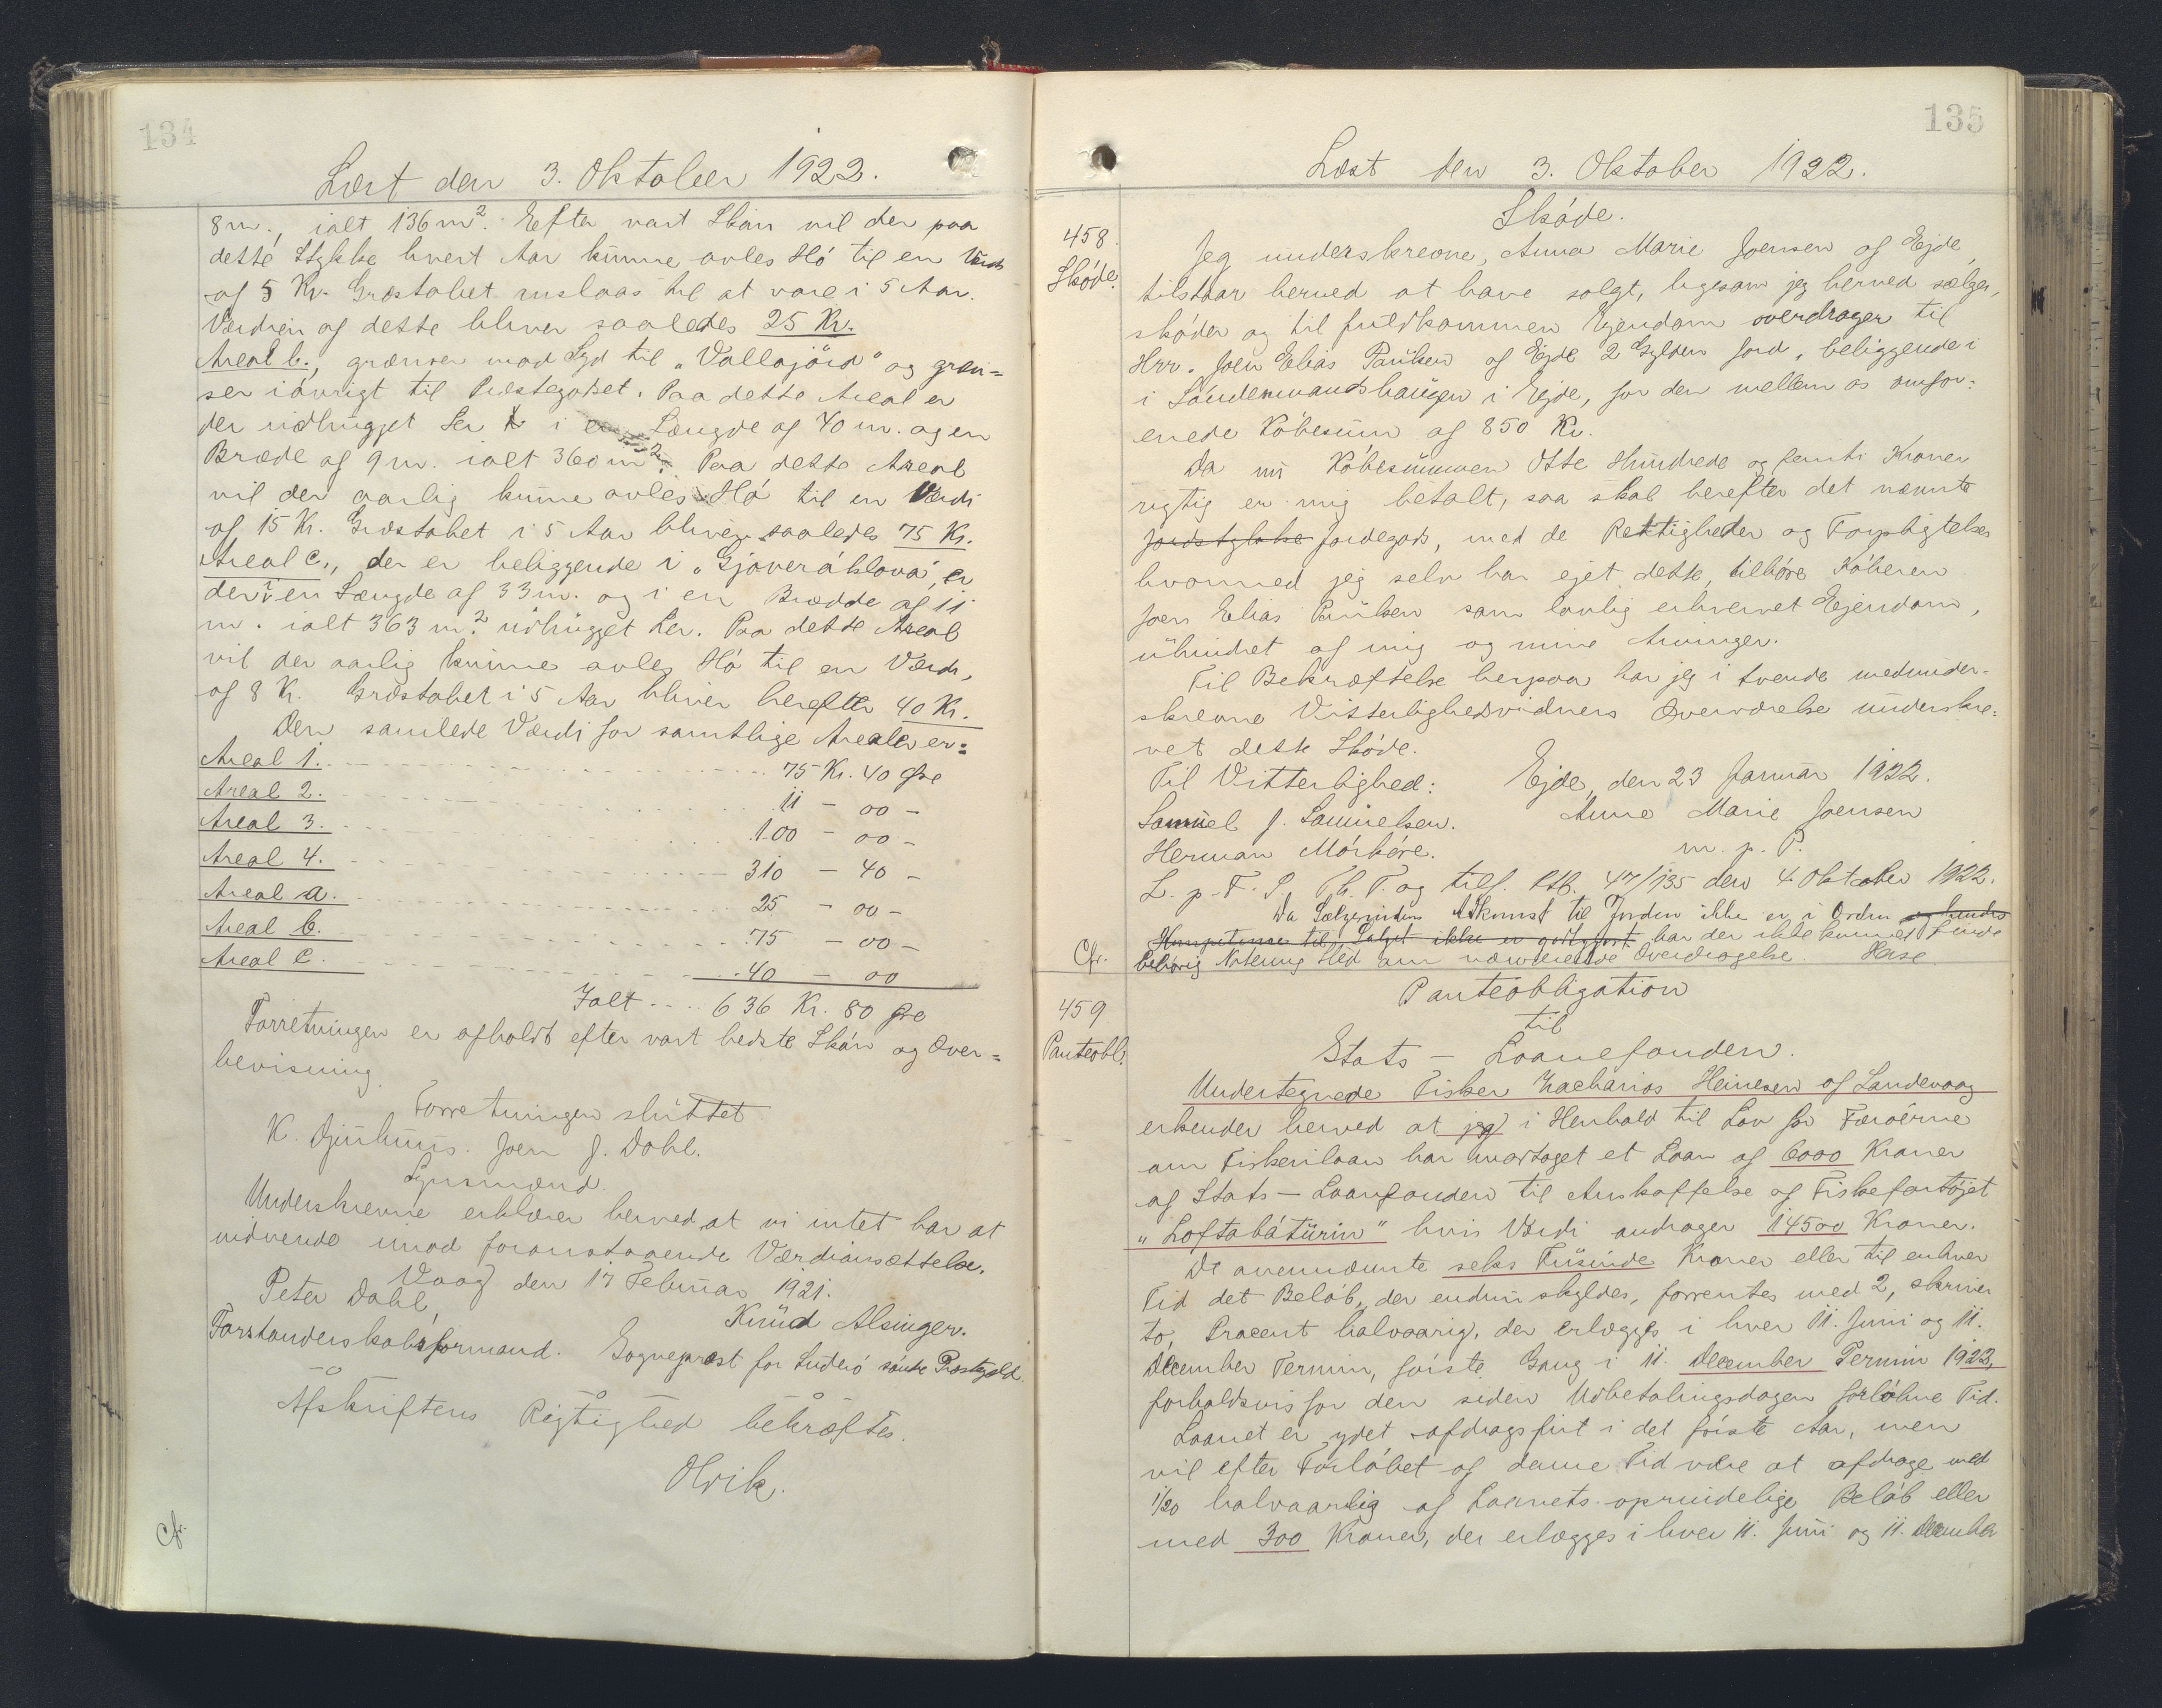 134
Læst den 3. Oktober 1922.
8 m., ialt 136 m². Efter vort Skøn vil der paa
dette Stykke hvert Aar kunne avles Hø til en Værdi
af 5 Kr. Græstabet anslaas til at vare i 5 Aar.
Værdien af dette bliver saaledes 25 Kr.
Areal b., grænser mod Syd til „Vallajørd" og græn=
ser iøvrigt til Præstegodset. Paa dette Areal er
der udhugget Ler i en Længde af 40 m. og en
Bræde af 9 m. ialt 360 m². Paa dette Areal
vil der aarlig kunne avles Hø til en Værdi
af 15 Kr. Græstabet i 5 Aar bliver saaledes 75 Kr.
Areal c., der er beliggende i „Gjøveráklova", er
der i en Længde af 33 m. og i en Bredde af 11
m. ialt 363 m². udhugget Ler. Paa dette Areal
vil der aarlig kunne avles Hø til en Værdi,
af 8 Kr. Græstabet i 5 Aar bliver herefter 40 Kr.
Den samlede Værdi for samtlige Arealer er:
Areal 1. 75 Kr. 40 Øre
Areal 2. 11 - 00 -
Areal 3. 100 - 00 -
Areal 4. 310 - 40 -
Areal a. 25 - 00 -
Areal b. 75 - 00 -
Areal c. 40 - 00
Ialt 636 Kr. 80 Øre
Forretningen er afholdt efter vort bedste Skøn og Over=
bevisning.
Forretningen sluttet
K. Djurhuus. Joen J. Dahl.
Synsmænd.
Underskrevne erklærer herved at vi intet har at
indvende imod foranstaaende Værdiansættelse.
Vaag den 17 Februar 1921.
Peter Dahl, Knud Alsinger.
Forstanderskabsformand. Sognepræst for Suderø søndre Præstegjeld.
Afskriftens Rigtighed bekræftes.
Olrik.
Cfr.
135
Læst den 3. Oktober 1922.
458.
Skøde.
Skøde.
Jeg underskrevne, Anna Marie Joensen af Ejde,
tilstaar herved at have solgt, ligesom jeg herved sælger,
skøder og til fuldkommen Ejendom overdrager til
Hrr. Joen Elias Paulsen af Ejde 2 Gylden Jord, beliggende i
i Søndenmandshaugen i Ejde, for den mellem os omfor=
enede Købesum af 850 Kr.
Da nu Købesummen Otte Hundrede og femti Kroner
rigtig er mig betalt, saa skal herefter det nævnte
Jordstykke Jordegods, med de Rettigheder og Forpligtelser
hvormed jeg selv har ejet dette, tilhøre Køberen
Joen Elias Paulsen som lovlig erhvervet Ejendom,
uhindret af mig og mine Arvinger.
Til Bekræftelse herpaa har jeg i tvende medunder-
skrevne Vitterlighedsvidners Overværelse underskre=
vet dette Skøde.
Til Vitterlighed: Ejde, den 23 Januar 1922.
Samuel J. Samuelsen. Anna Marie Joensen
Herman Mörköre. m. p. P.
L. p. F. S. Th. T. og tilf. Ltb. 47/135 den 4. Oktober 1922.
Da Sælgerindens Adkomst til Jorden ikke er i Orden og hendes
Kompetence til Salget ikke er godtgjort har der ikke kunnet finde
Cfr. behørig Notering Sted om nærværende Overdragelse. Hese.
459
Panteobl.
Panteobligation
til
Stats - Laanefonden.
Undertegnede Fisker Zacharias Heinesen af Sandevaag
erkender herved at jeg i Henhold til Lov for Færøerne
om Fiskerilaan har modtaget et Laan af 6000 Kroner
af Stats - Laanefonden til Anskaffelse af Fiskefartøjet
„Loftabáturin" hvis Værdi andrager 14500 Kroner.
De ovennævnte seks Tusinde Kroner eller til enhver
Tid det Beløb, der endnu skyldes, forrentes med 2, skriver
to, Procent halvaarig, der erlægges i hver 11. Juni og 11.
December Termin, første Gang i 11. December Termin 1922,
forholdsvis for den siden Udbetalingsdagen forløbne Tid.
Laanet er ydet afdragsfirt i det første Aar, men
vil efter Forløbet af denne Tid være at afdrage med
1/20 halvaarlig af Laanets oprindelige Beløb eller
med 300 Kroner, der erlægges i hver 11. Juni og 11. December